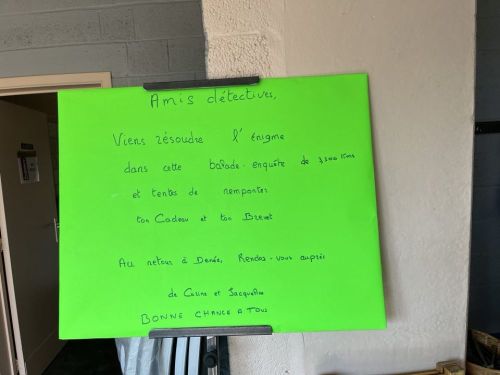 Amis détectives,
Viens résoudre l'énigme
dans cette balade-enquête de 3,300 Kms
et tentes de remporter
ton Cadeau et ton Brevet
Au retour à Denée, Rendez-vous auprès
de Coline et Jacqueline
BONNE CHANCE A TOUS